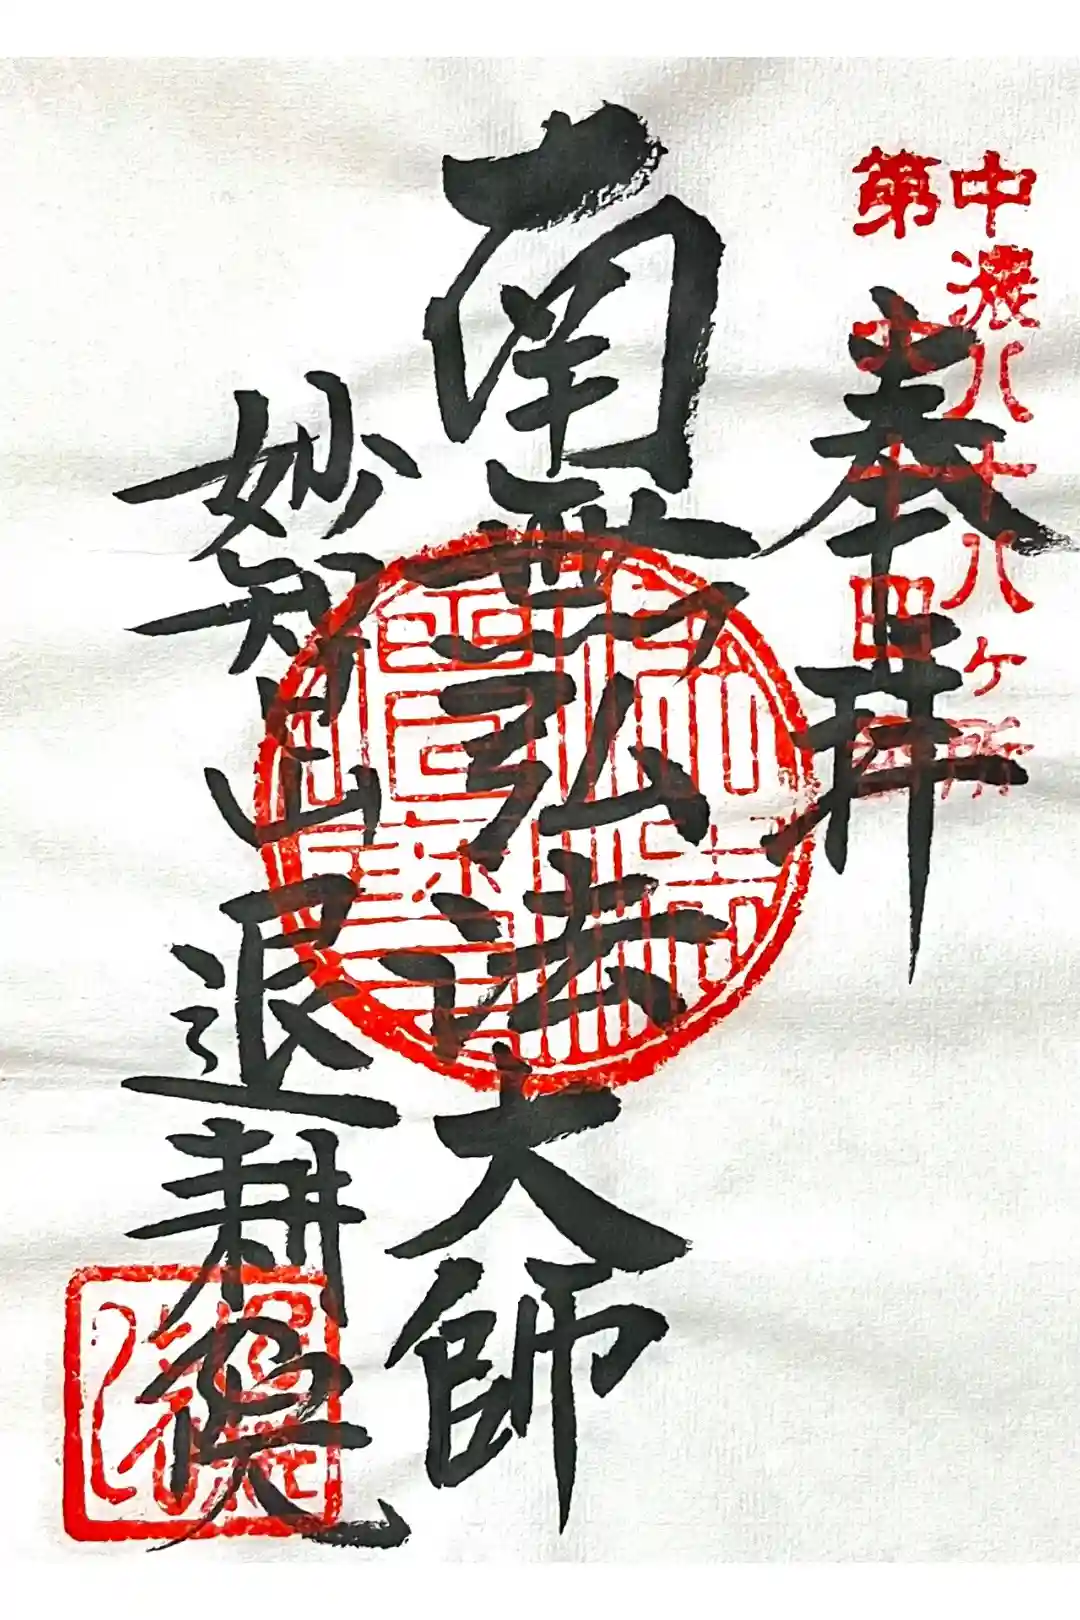 中濃八十八ヶ所
第六十四番
奉拝
南無弘法大師
妙智山退耕庵